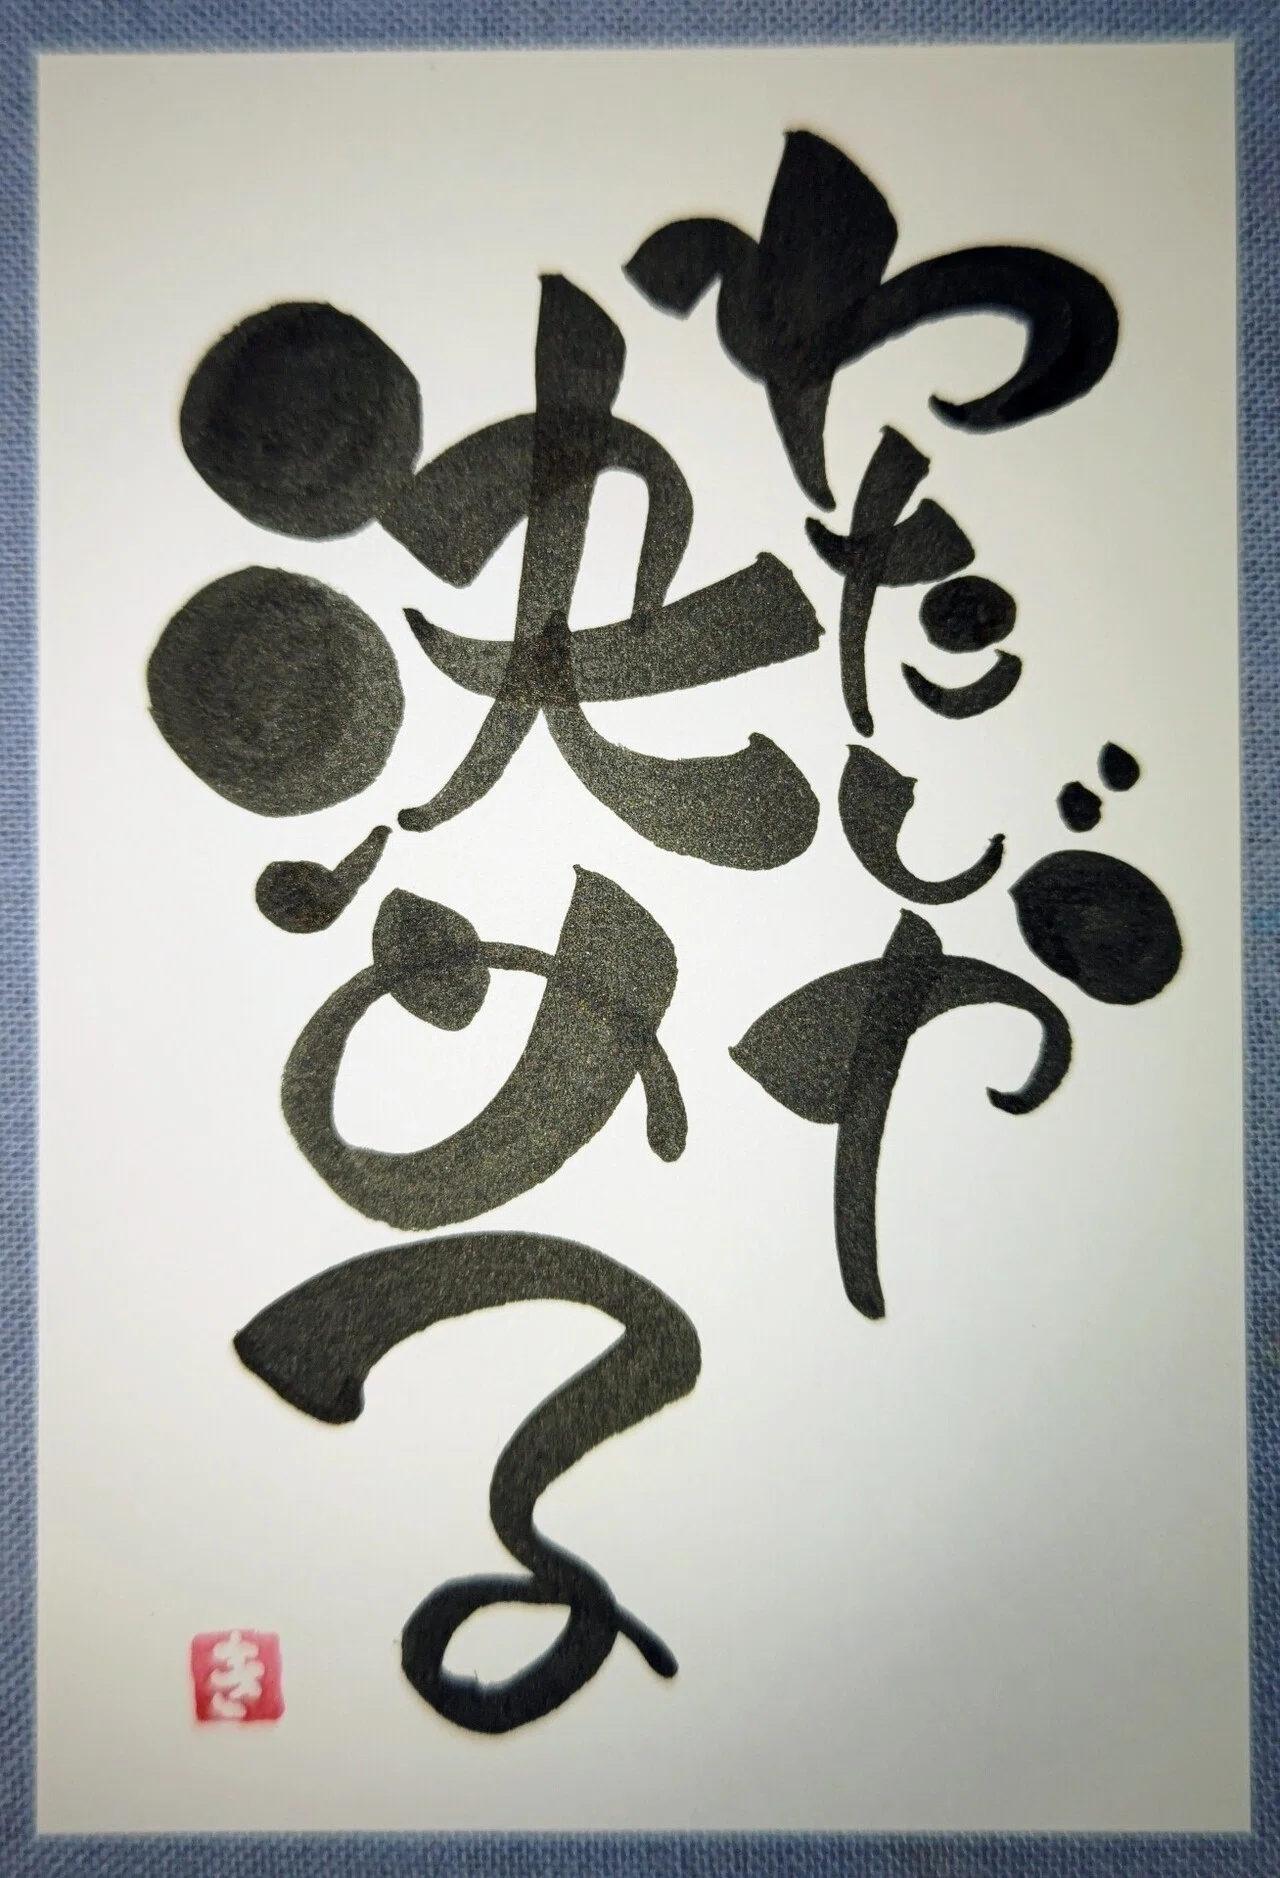 わたしが
決める
き